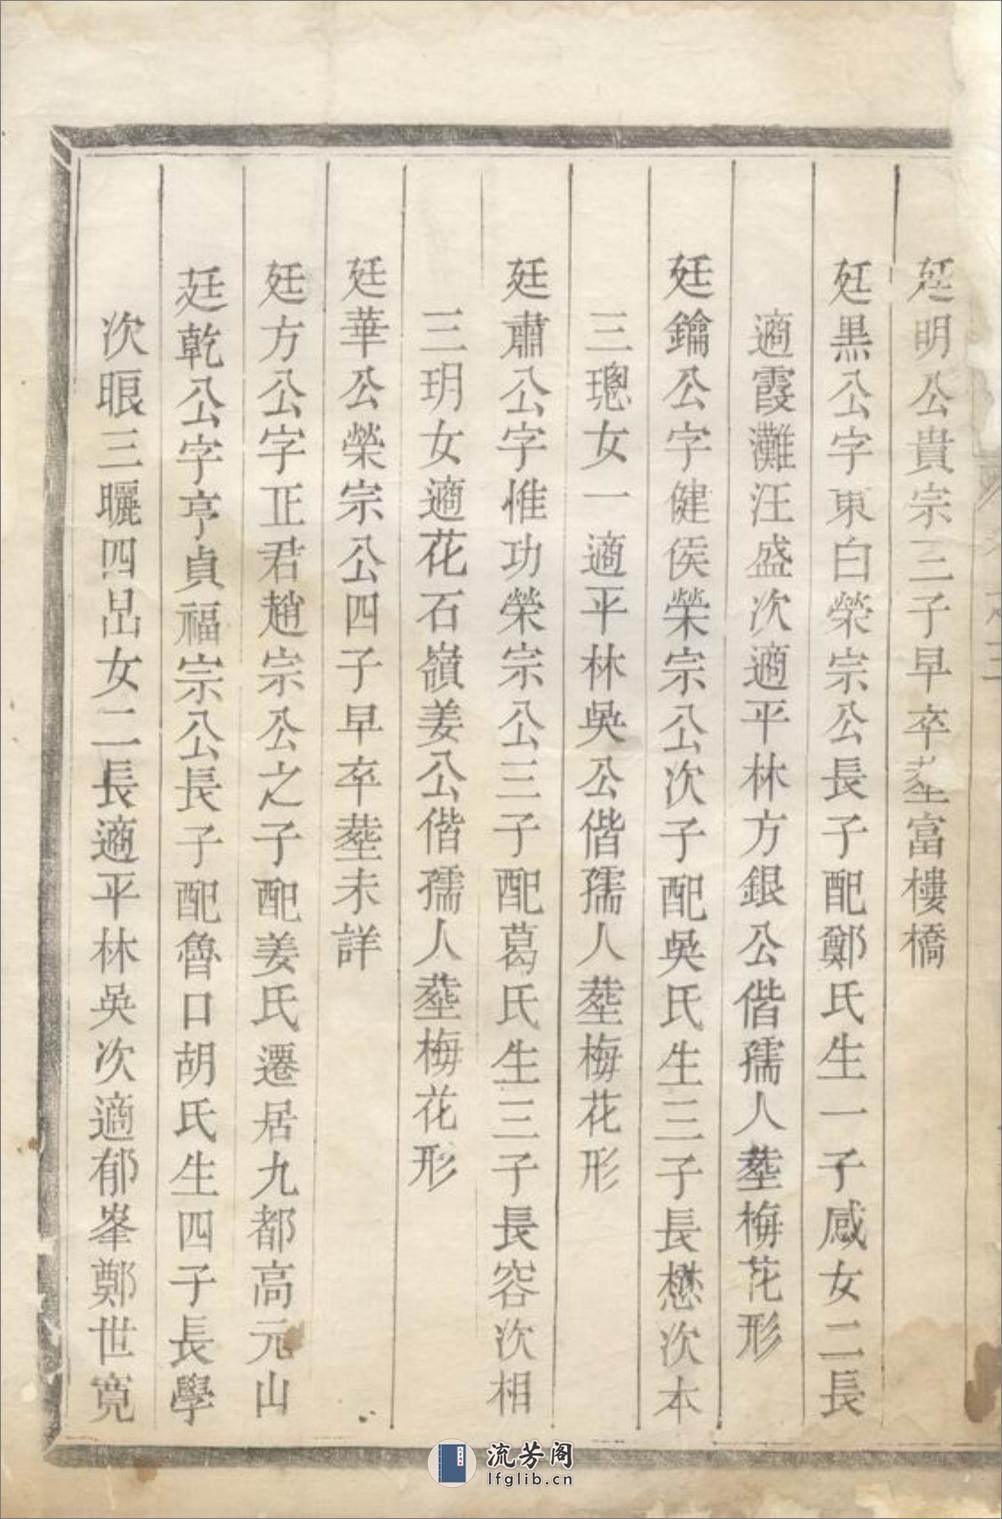 廷明公貴宗三子早卒塟富樓橋
廷黒公字東白榮宗公長子配鄭氏生一子感女二長
適霞灘汪盛次適平林方銀公偕孺人塟梅花形
廷鑰公字健侯榮宗公次子配吳氏生三子長懋次本
三璁女一適平林吳公偕孺人塟梅花形
廷肅公字惟功榮宗公三子配葛氏生三子長容次相
三玥女適花石嶺姜公偕孺人塟梅花形
廷華公榮宗公四子早卒塟未詳
廷方公字正君趙宗公之子配姜氏遷居九都高元山
廷乾公字亨貞福宗公長子配魯口胡氏生四子長學
次眼三曬四岀女二長適平林吳次適郁峯鄭世寬
流芳阁
lfglib.cn